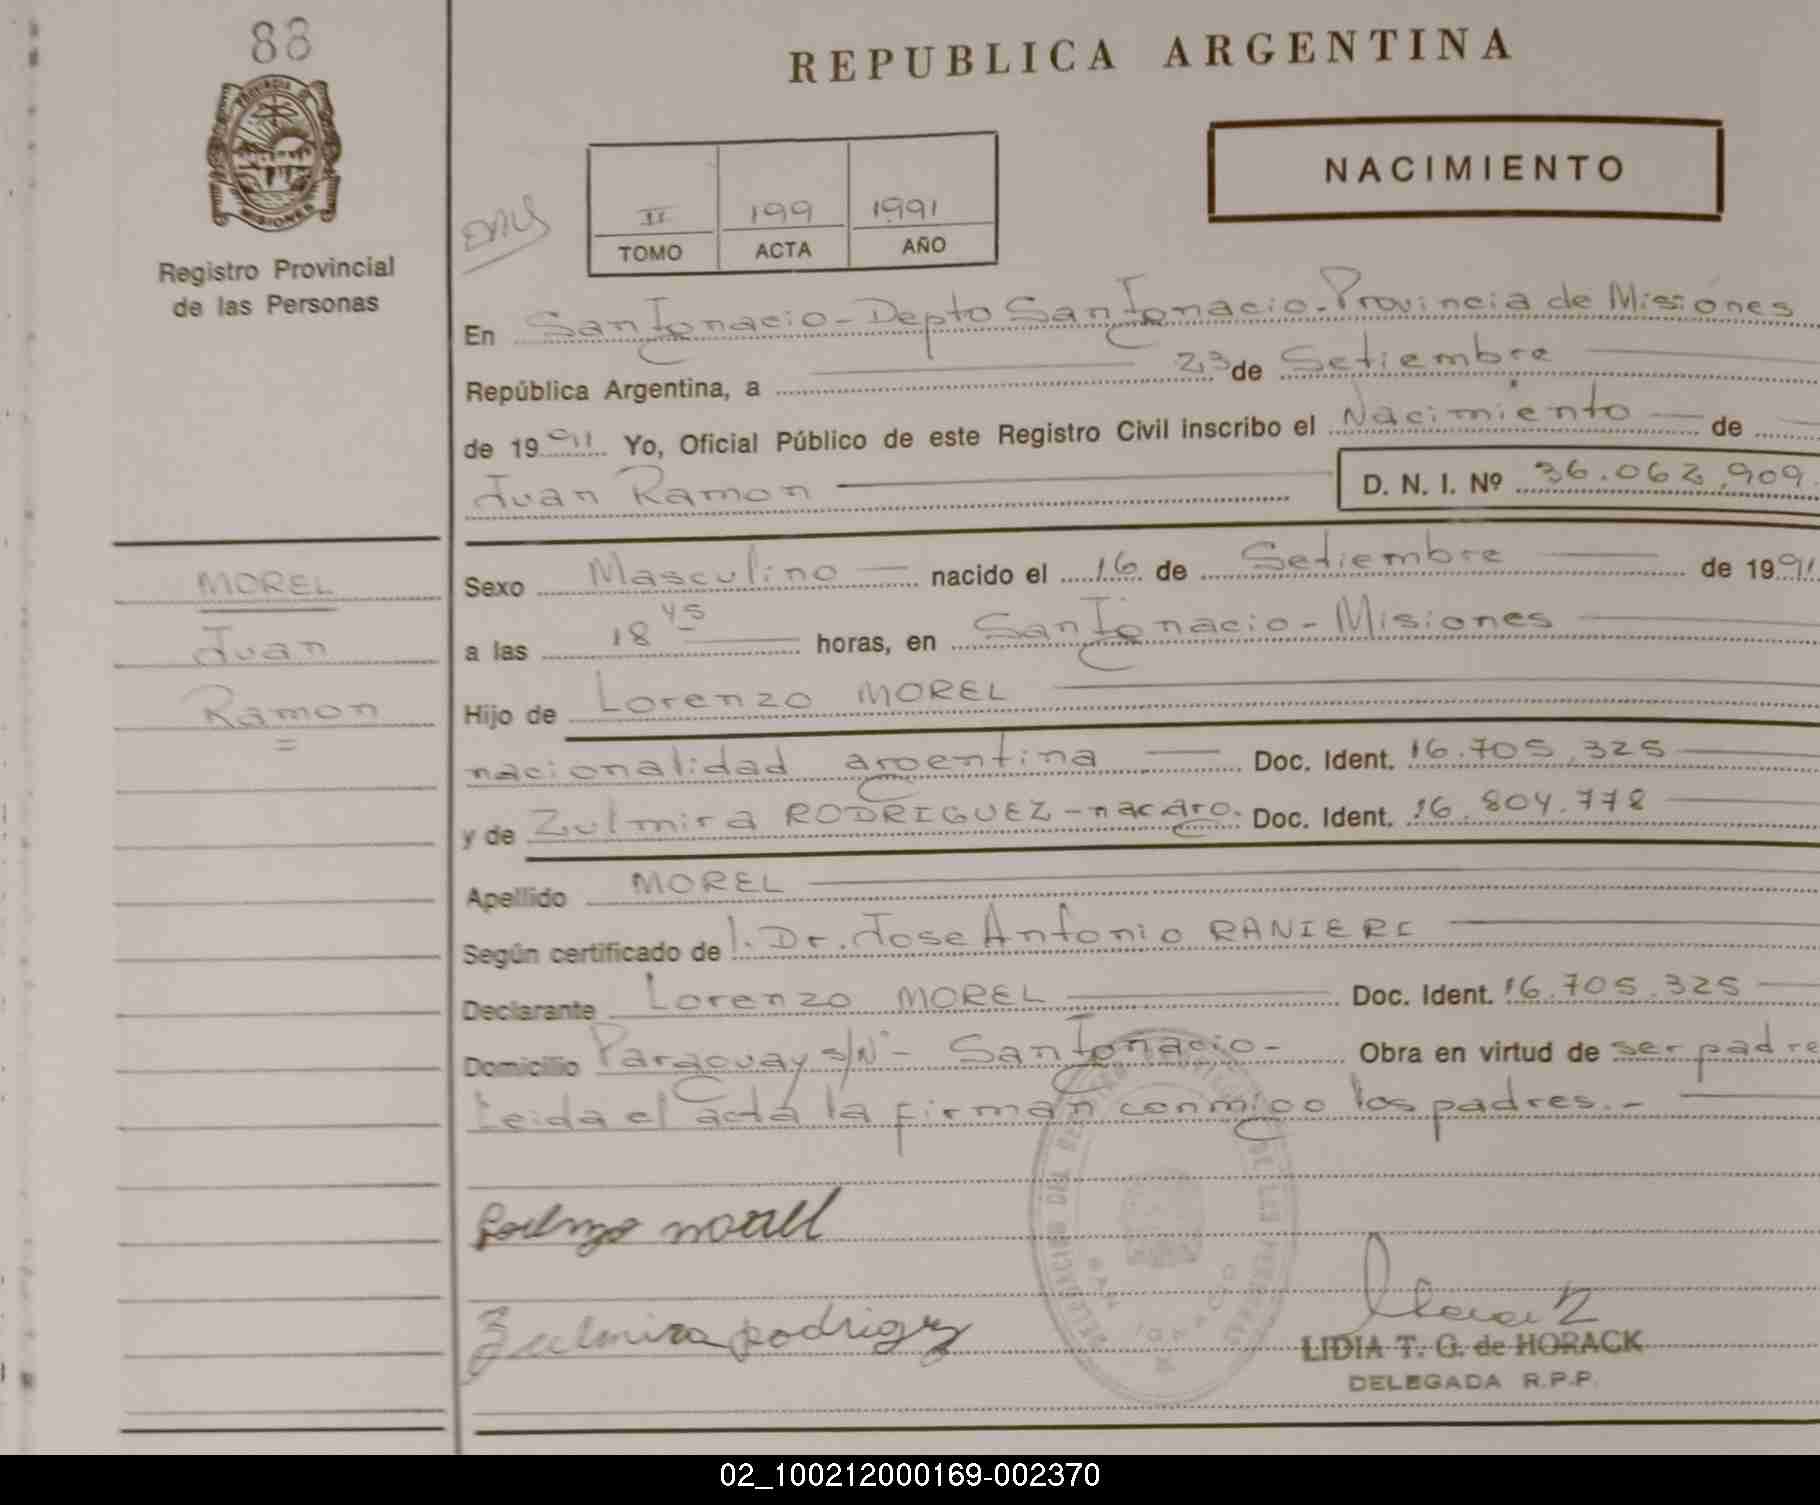 88
REPUBLICA ARGENTINA
PROVINCIA D
MISIONES
NACIMIENTO
II 199 1991
TOMO ACTA AÑO
Registro Provincial
de las Personas
En San Ignacio - Depto San Ignacio - Provincia de Misiones
República Argentina, a 23 de Setiembre
de 1991 Yo, Oficial Público de este Registro Civil inscribo el Nacimiento de
Juan Ramon D. N. I. Nº 36.062.909.
MOREL
Juan
Ramon
Sexo Masculino nacido el 16 de Setiembre de 1991
a las 18 45 horas, en San Ignacio - Misiones
Hijo de Lorenzo MOREL
nacionalidad argentina Doc. Ident. 16.705.325
y de Zulmira RODRIGUEZ - nac.arg. Doc. Ident. 16.804.778
Apellido MOREL
Según certificado de l. Dr. Jose Antonio RANIERI
Declarante Lorenzo MOREL Doc. Ident. 16.705.325
Domicilio Paraguay s/Nº - San Ignacio - Obra en virtud de ser padre
Leida el acta la firman conmigo los padres.-
morell
Zulmira rodrigz
LIDIA T. G. de HORACK
DELEGADA R.P.P.
02_100212000169-002370